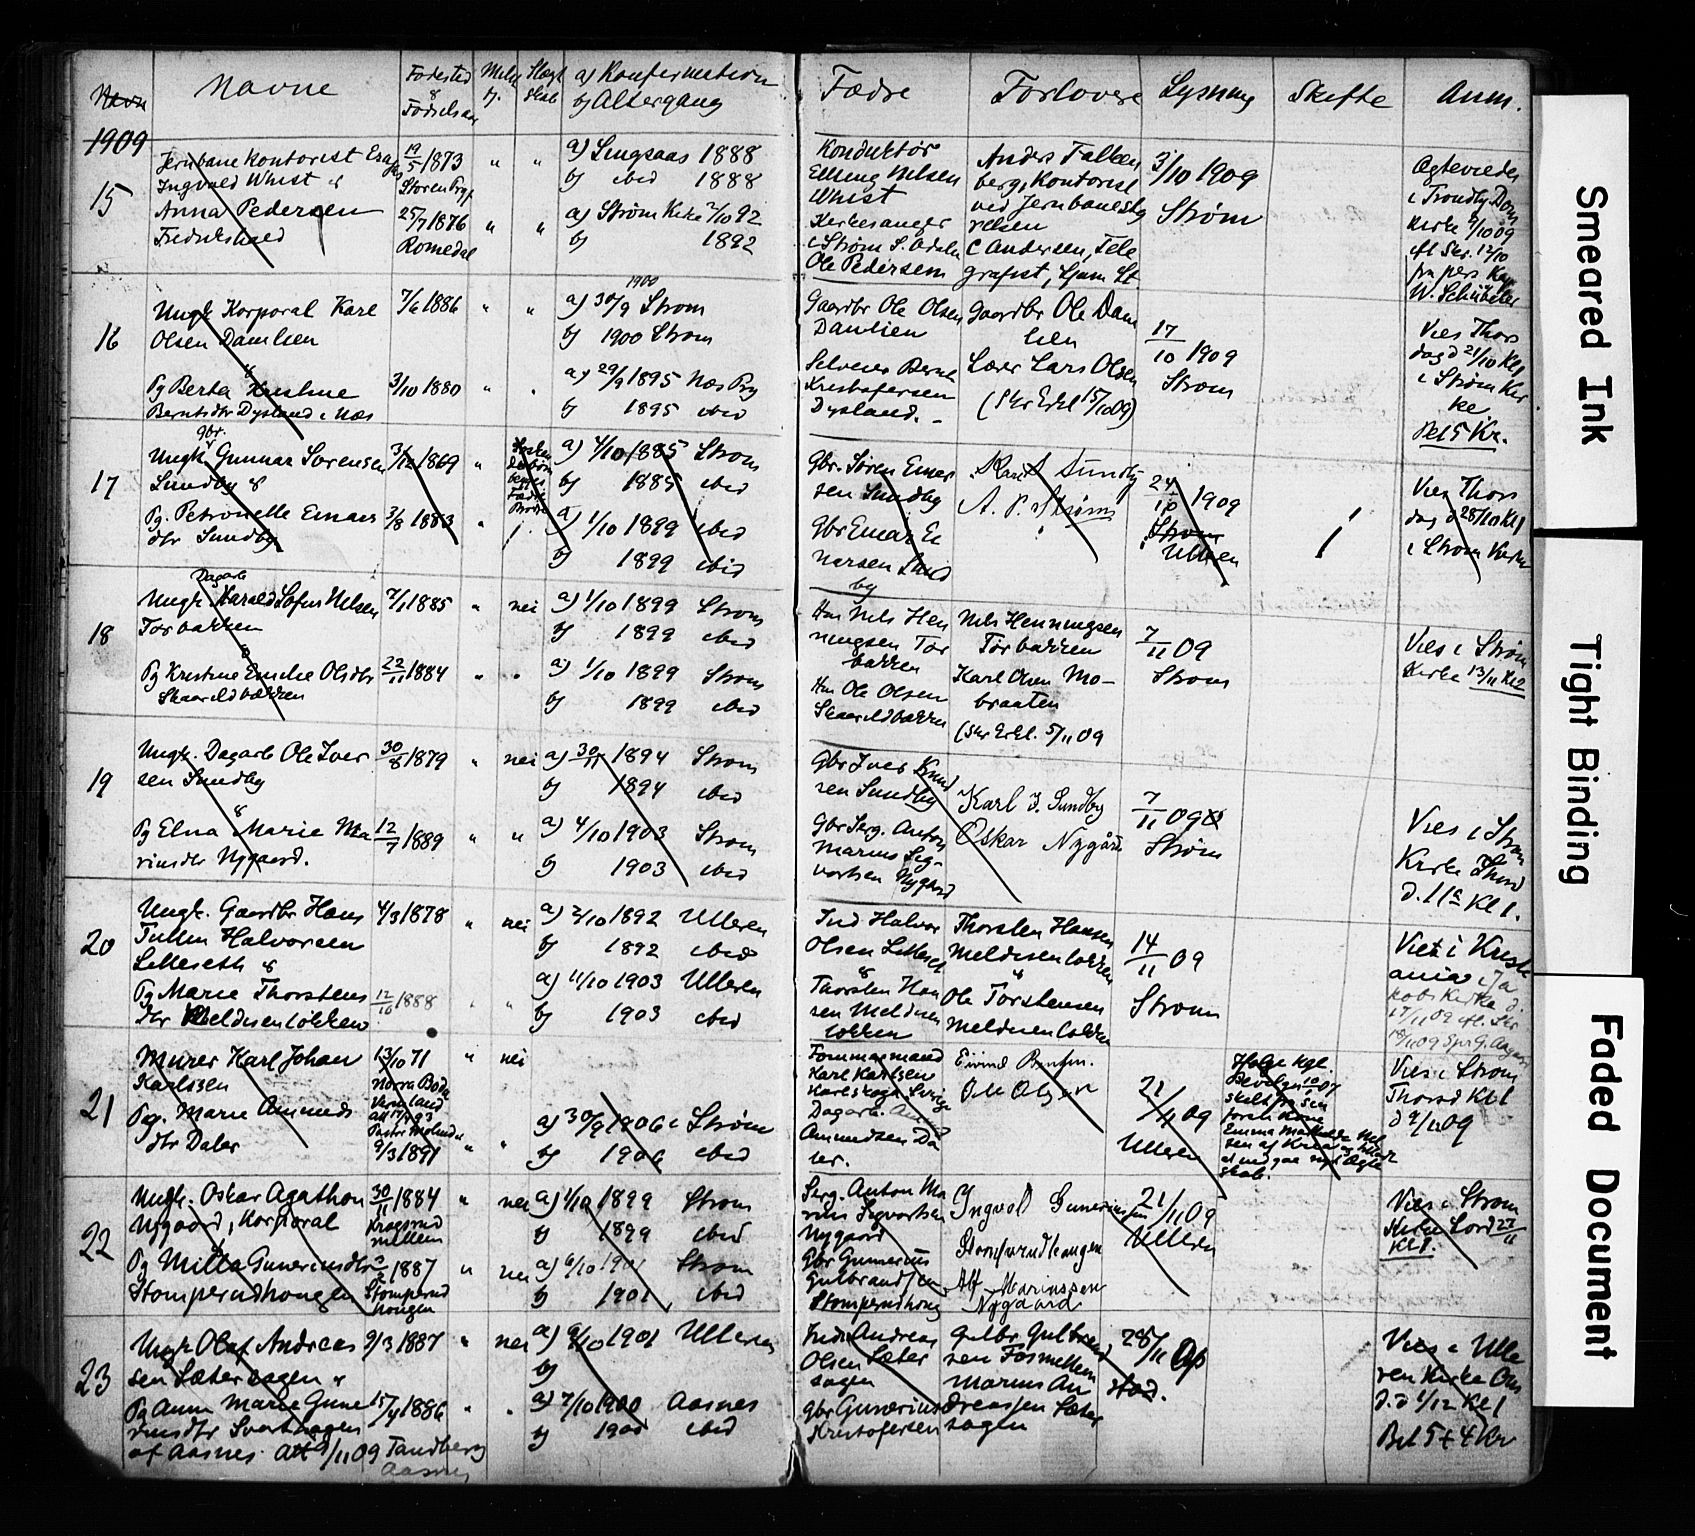 Navne
Fødested & Fødselsaar
a) Konfirmation
b) Altergang
Fædre
Forlovere
Lysning
Skifte
Anm.
1909
15
Jernbane Kontorist
Ingvald Whist &
Anna Pedersen
Fredrikshald
19/5 1873
Støren Pgj
25/7 1876
Romedal
a) Singsaas 1888
b) ibid 1888
a) Strøm Kirke 2/10 92
b) 1892
Konduktør
Elling Nilsen
Whist
Kirkesanger
i Strøm S. Odalen
Ole Pedersen
Anders Falken
berg, Kontorist
ved Jernbanesty
relsen
C Andersen, Tele
grafist, Ljan St.
3/10 1909
Strøm
Ægtevieder
i Trondhj Dom
Kirke 9/10 09
fra pers. Kap
W. Schübeler
16
Ungk Korporal Karl
Olsen Damlien
&
Pg Berta Kristine
Berntsdtr Dysland i Næs
7/6 1886
3/10 1880
1900
a) 30/9 Strøm
b) 1900 Strøm
a) 29/9 1895 Næs Prg
b) 1895 ibid
Gaardbr Ole Olsen
Damlien
Selveier Bernt
Kristofersen
Dysland.
Gaardbr Ole Dam
lien
Lærer Lars Olsen
(Skr Erkl 15/10 09)
17/10 1909
Strøm
Vies Thors
dag d 21/10 Kl 1
i Strøm Kir
ke
Bet 5 Kr.
17
gbr.
Ungk Gunnar Sørensen
Sundby &
Pg. Petronelle Einars
dtr Sundby
3/12 1869
3/8 1883
a) 4/10 1885 Strøm
b) 1885 ibid
a) 1/10 1899 ibid
b) 1899 ibid
Gbr. Søren Einar
sen Sundby
Gbr Einar Ei
narsen Sund
by
Sundby
A. P. Strøm
24/10 1909
Strøm
Ullern
Vies Thors
dag d 28/10 Kl 1
i Strøm Kirke
18
Dagarb
Ungk. Harald Sofus Nilsen
Torbakken
&
Pg Kristine Emilie Olsdtr
Skaarildbakken
7/1 1885
22/11 1884
nei
a) 1/10 1899 Strøm
b) 1899 ibid
a) 1/10 1899 Strøm
b) 1899 ibid
Hm Nils Hen
ningsen Tor
bakken
Hm Ole Olsen
Skaarildbakken
Nils Henningsen
Torbakken
Karl Olsen Mo-
braaten
(Skr Erkl. 5/11 09
7/11 09
Strøm
Vies i Strøm
Kirke 13/11 Kl 2
19
Ungk. Dagarb Ole Iver
sen Sundby
&
Pg Elna Marie Ma
rinsdtr Nygaard.
30/8 1879
12/7 1889
nei
a) 30/11 1894 Strøm
b) 1894 ibid
a) 4/10 1903 Strøm
b) 1903 ibid
Gbr Iver Knud
sen Sundby
Gbr Serg. Anton
Marius Sig-
vartsen Nygaard
Karl I. Sundby
Oskar Nygård
7/11 09
Strøm
Vies i Strøm
Kirke Thorsd
d. 11te Kl 1.
20
Ungk. Gaardbr Hans
Tullin Halvorsen
Setteseth &
Pg Marie Thorstens
dtr Meldnesenløkken
4/3 1878
12/10 1888
nei
a) 2/10 1892 Ullern
b) 1892 ibid
a) 11/10 1903 Ullern
b) 1903 ibid
Ind Halvor
Olsen
&
Thorsten Han
sen
løkken
Thorsten Hansen
&
Ole Torstensen
14/11 09
Strøm
Viet i Kristi
ania i Ja
kobs Kirke d.
17/11 09
21
Murer Karl Johan
Karlsen
Pg. Marie Amunds
dtr Daler
13/10 71
9/3 1891
nei
a) 30/9 1906 i Strøm
b) 1906 ibid
Tømmermand
Karl Karlsen
Karlskoga Sverige
Dagarb.
Amundsen Da
ler.
Ole Olsen
21/11 09
Ullern
Ifølge Kgl.
Vies i Strøm
Thorsd Kl 1
d 2/12 09
22
Ungk. Oskar Agathon
Nygaard, Korporal
Pg Milla Gunerinsdtr
Stomperudhougen
30/11 1884
1887
Stomperud
hougen
nei
nei
a) 1/10 1899 Strøm
b) 1899 ibid
a) 6/10 1901 Strøm
b) 1901 ibid
Serg. Anton Ma
rius Sigvartsen
Nygaard
Gbr Gunerius
Gulbrandsen
Stomperudhoug
Ingvol Gunerinssen
Stomperudhaugen
Alf Marinssen
Nygaard
21/11 09
Ullern
Vies i Strøm
Kirke Lørd 27/11
Kl 1.
23
Ungk Olaf Andreas
sen Sætersagen &
Pg Anna Marie Gune
riusdtr Svarthagen
af Aasnes. Att 9/11 09 Tandberg
Aasnes
9/3 1887
15/4 1886
nei
a) 9/10 1901 Ullern
b)
a) 7/10 1900 Aasnes
b) 1900 ibid
Ind Andreas
Olsen Sæter
sagen
Gbr Gunerius
Kristofersen
Gulbr. Gulbrand
sen Fosmellen
Marius An
dreassen Sæter
sagen
28/11 09
Vies i Ulle
ren Kirke Ons
d. d 1/12 Kl 1
Bet 5 + 4 Kr
Smeared Ink
Tight Binding
Faded Document